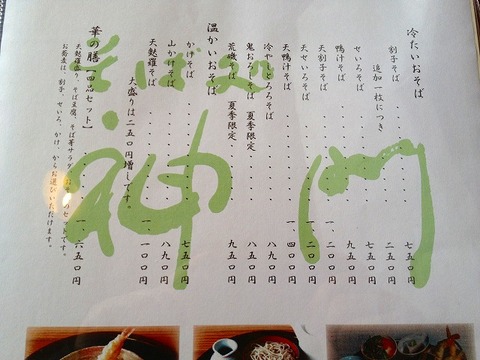 冷たいおそば
割子そば ・・・・・・ 七五〇円
追加一枚につき ・・・・・・ 二五〇円
せいろそば ・・・・・・ 七五〇円
鴨汁そば ・・・・・・ 九五〇円
天割子そば ・・・・・・ 一、二〇〇円
天せいろそば ・・・・・・ 一、二〇〇円
天鴨汁そば ・・・・・・ 一、四〇〇円
冷やしとろろそば ・・・・・・ 八九〇円
鬼おろしそば 夏季限定 ・・・・・・ 八五〇円
荒磯そば 夏季限定 ・・・・・・ 九五〇円
温かいおそば
かけそば ・・・・・・ 七五〇円
山かけそば ・・・・・・ 八九〇円
天麩羅そば ・・・・・・ 一、一〇〇円
大盛りは二五〇円増しです。
華の膳【四品セット】 ・・・・・・ 一、六五〇円
天麩羅盛り、そば豆腐、そば茅サラダ、 のセットです。
お蕎麦は、割子、せいろ、かけ、からお選びいただけます。
そば処
神門